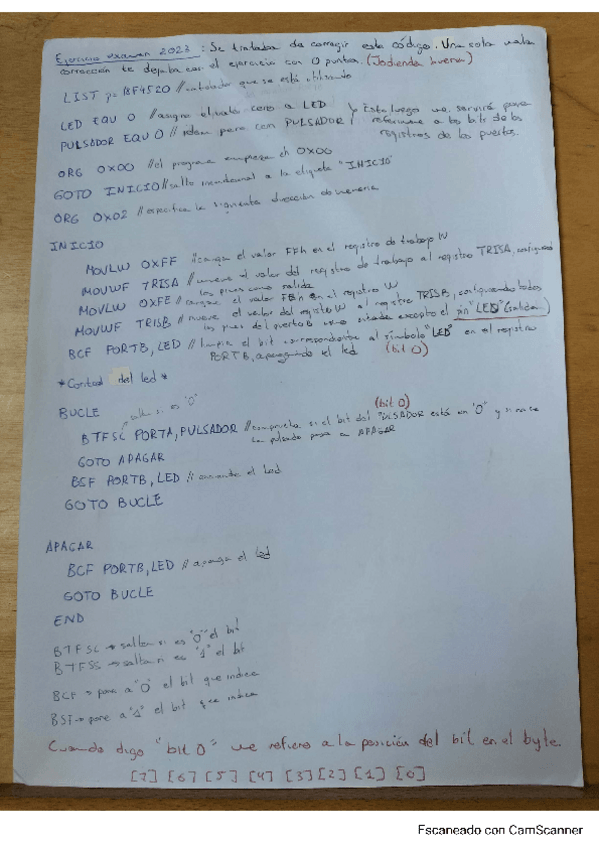 Ejercicio examen 2023: Se trataba de corregir este código. Una sola mala
corrección te dejaba con el ejercicio con 0 puntos. (Jodienda buena)
LIST p=18F4520 //controlador que se está utilizando
LED EQU 0 //asigna el valor cero a LED
PULSADOR EQU 0 //idem pero con PULSADOR
Esto luego me servirá para
referirme a los bits de los
registros de los puertos.
ORG 0X00 //el programa empieza en 0x00
GOTO INICIO //salto incondicional a la etiqueta "INICIO"
ORG 0X02 //especifica la siguiente dirección de memoria
INICIO
MOVLW 0XFF //carga el valor FFh en el registro de trabajo W
MOVWF TRISA //mueve el valor del registro de trabajo al registro TRISA, configurando
los pines como salida
MOVLW 0XFE //carga el valor FEh en el registro W
MOVWF TRISB //mueve el valor del registro W al registro TRISB, configurando todos
los pines del puerto B como entrada excepto el pin "LED" (salida)
BCF PORTB, LED //limpia el bit correspondiente al símbolo "LED" en el registro
PORTB, apagando el led (bit 0)
*Control del led*
BUCLE
salta si es "0"
(bit 0)
BTFSC PORTA, PULSADOR //comprueba si el bit del PULSADOR está en "0" y si no se
ha pulsado pasa a APAGAR
GOTO APAGAR
BSF PORTB, LED //enciende el led
GOTO BUCLE
APAGAR
BCF PORTB, LED //apaga el led
GOTO BUCLE
END
BTFSC → saltan si es "0" el bit
BTFSS → saltan si es "1" el bit
BCF → pone a "0" el bit que indica
BSF → pone a "1" el bit que indica
Cuando digo "bit 0" me refiero a la posición del bit en el byte.
[7] [6] [5] [4] [3] [2] [1] [0]
Escaneado con CamScanner